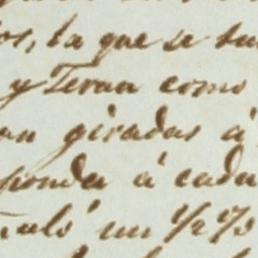 os, la que se
y Teran como
an giradas á
ponda á cada
un 1/2 %